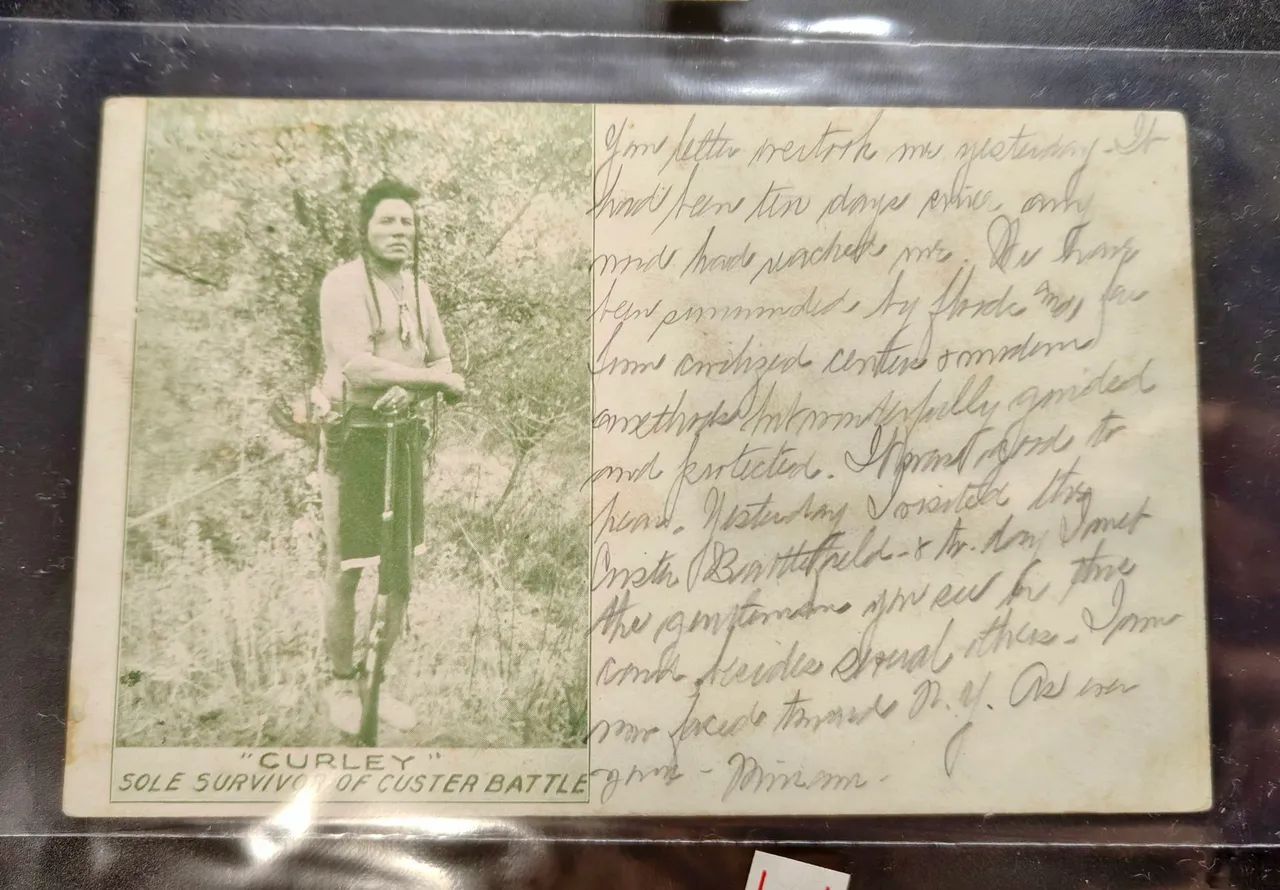 "CURLEY"
SOLE SURVIVOR OF CUSTER BATTLE
Your letter overtook me yesterday. It
had been ten days since any
word had reached me. We have
been surrounded by floods and far
from civilized centers & modern
methods but wonderfully guided
and protected. It was good to
hear. Yesterday I visited the
Custer Battlefield & to-day I met
the gentleman you see on this
card besides several others. I am
now faced towards N.Y. As ever
yours - Miriam -